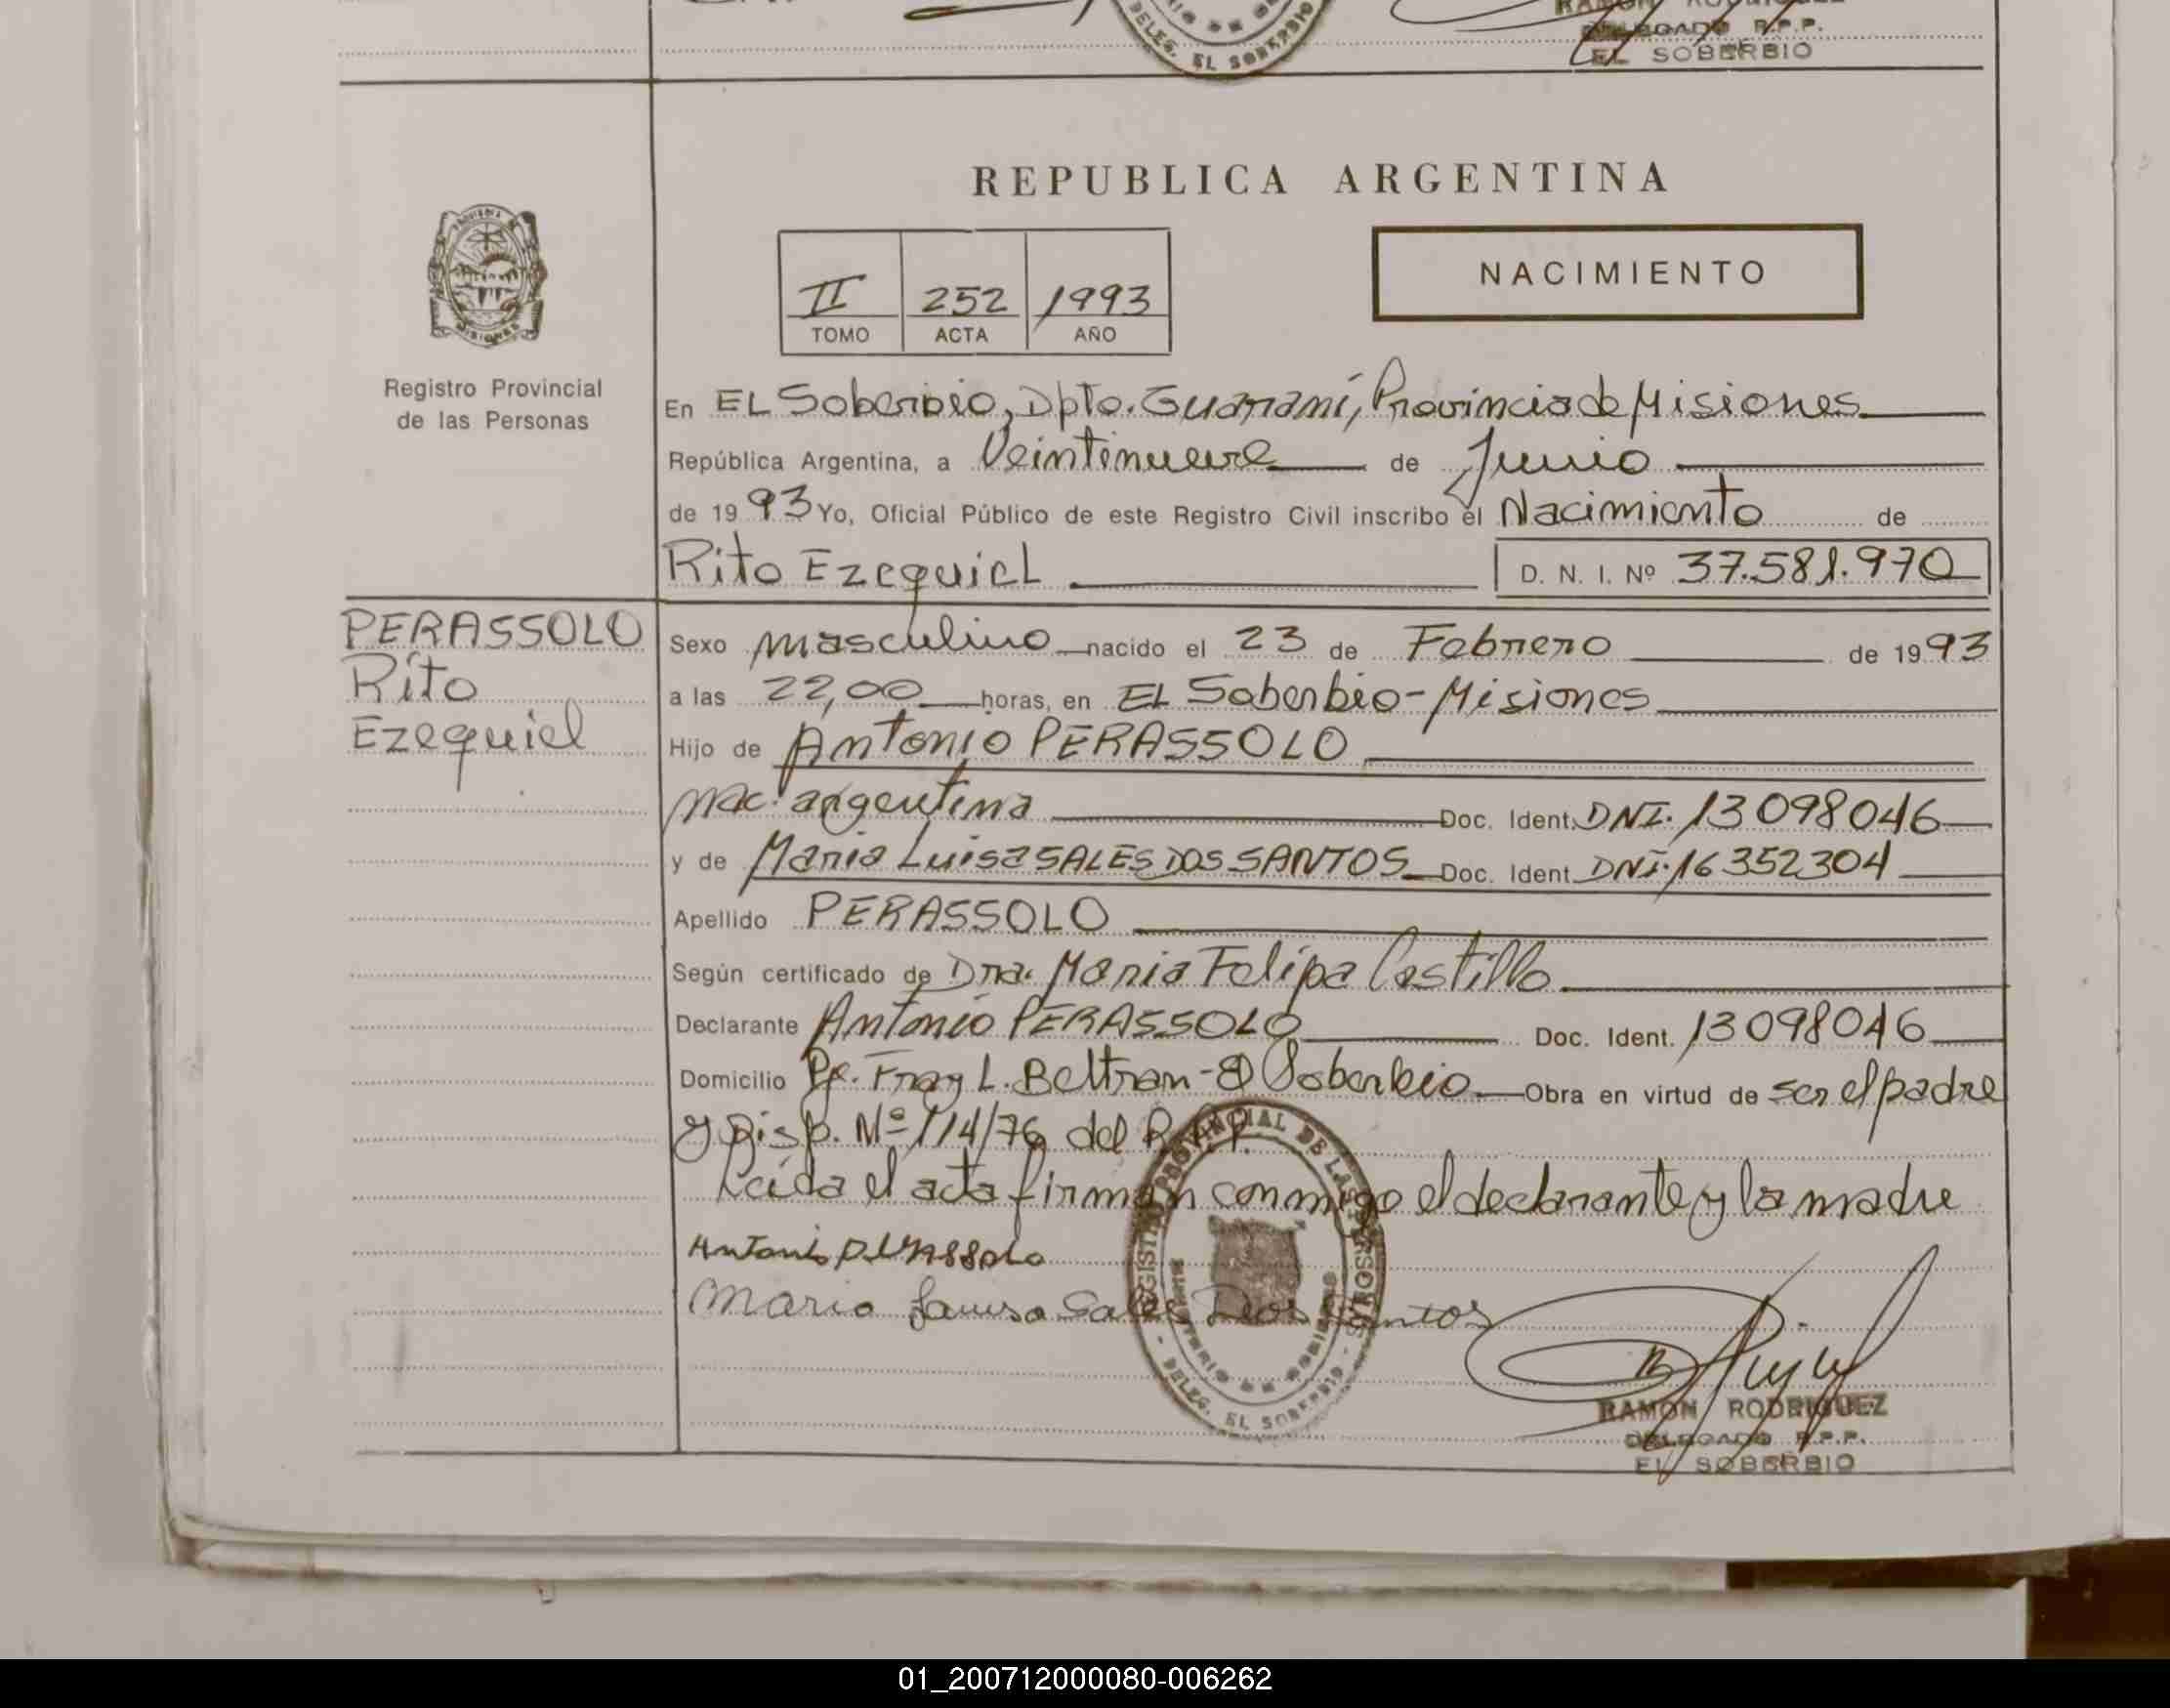 RAMON RODRIGUEZ
DELEGADO R.P.P.
EL SOBERBIO
DELEG. EL SOBERBIO
REPUBLICA ARGENTINA
II 252 1993
TOMO ACTA AÑO
NACIMIENTO
Registro Provincial
de las Personas
En EL Soberbio, Dpto. Guaraní, Provincia de Misiones
República Argentina, a Veintinueve de Junio
de 1993 Yo, Oficial Público de este Registro Civil inscribo el Nacimiento de
Rito Ezequiel D. N. I. Nº 37.581.970
PERASSOLO
Rito
Ezequiel
Sexo masculino nacido el 23 de Febrero de 1993
a las 22,00 horas, en EL Soberbio-Misiones
Hijo de Antonio PERASSOLO
nac. argentina Doc. Ident. DNI. 13098046
y de Maria Luisa SALES DOS SANTOS Doc. Ident. DNI. 16352304
Apellido PERASSOLO
Según certificado de Dra. Maria Felipa Castillo
Declarante Antonio PERASSOLO Doc. Ident. 13098046
Domicilio Fray L. Beltran - El Soberbio Obra en virtud de ser el padre
y Disp. Nº 114/76 del R.P.P.
Leída el acta firman conmigo el declarante y la madre
Antonio Perassolo
Maria Luisa Sales Dos Santos
REGISTRO PROVINCIAL DE LAS PERSONAS
MINISTERIO DE GOBIERNO
- DELEG. EL SOBERBIO -
RAMON RODRIGUEZ
DELEGADO R.P.P.
EL SOBERBIO
01_200712000080-006262